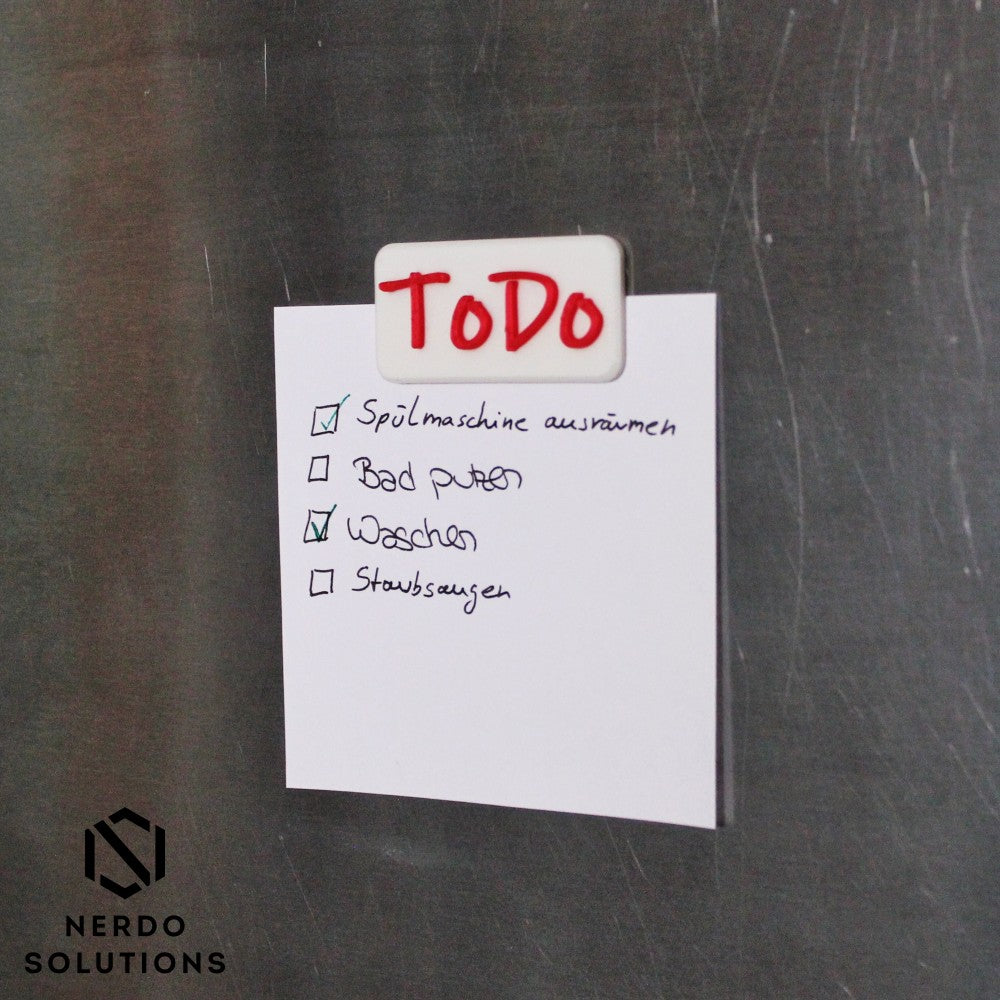 ToDo
Spülmaschine ausräumen
Bad putzen
Waschen
Staubsaugen
NERDO
SOLUTIONS